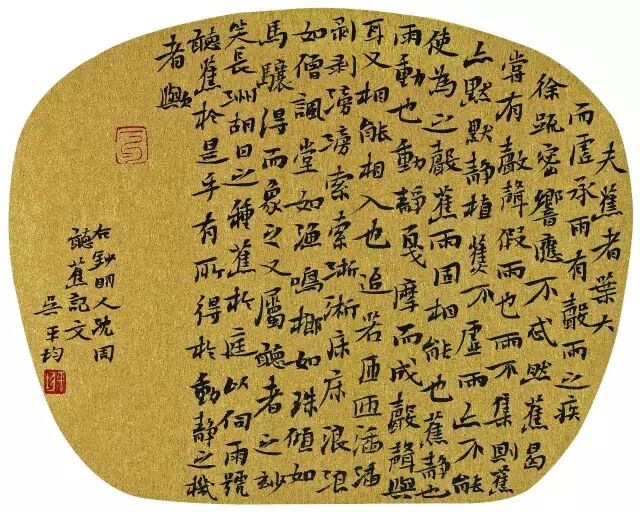 夫蕉者葉大
而虛承雨有聲雨之疾
徐疏密響應不忒然蕉曷
嘗有聲聲假雨也雨不集則蕉
亦默默静植蕉不虛雨亦不能
使為之聲蕉雨固相能也蕉静也
雨動也動静戛摩而成聲聲與
耳又相能相入也迨若匝匝插插
剥剥滂滂索索淅淅床床浪浪
如僧諷堂如漁鳴榔如珠傾如
馬驤得而象之又屬聽者之妙
矣長洲胡日之種蕉於庭以伺雨號
聽蕉於是乎有所得於動静之機
者歟
右鈔明人沈周
聽蕉記文
吴平均